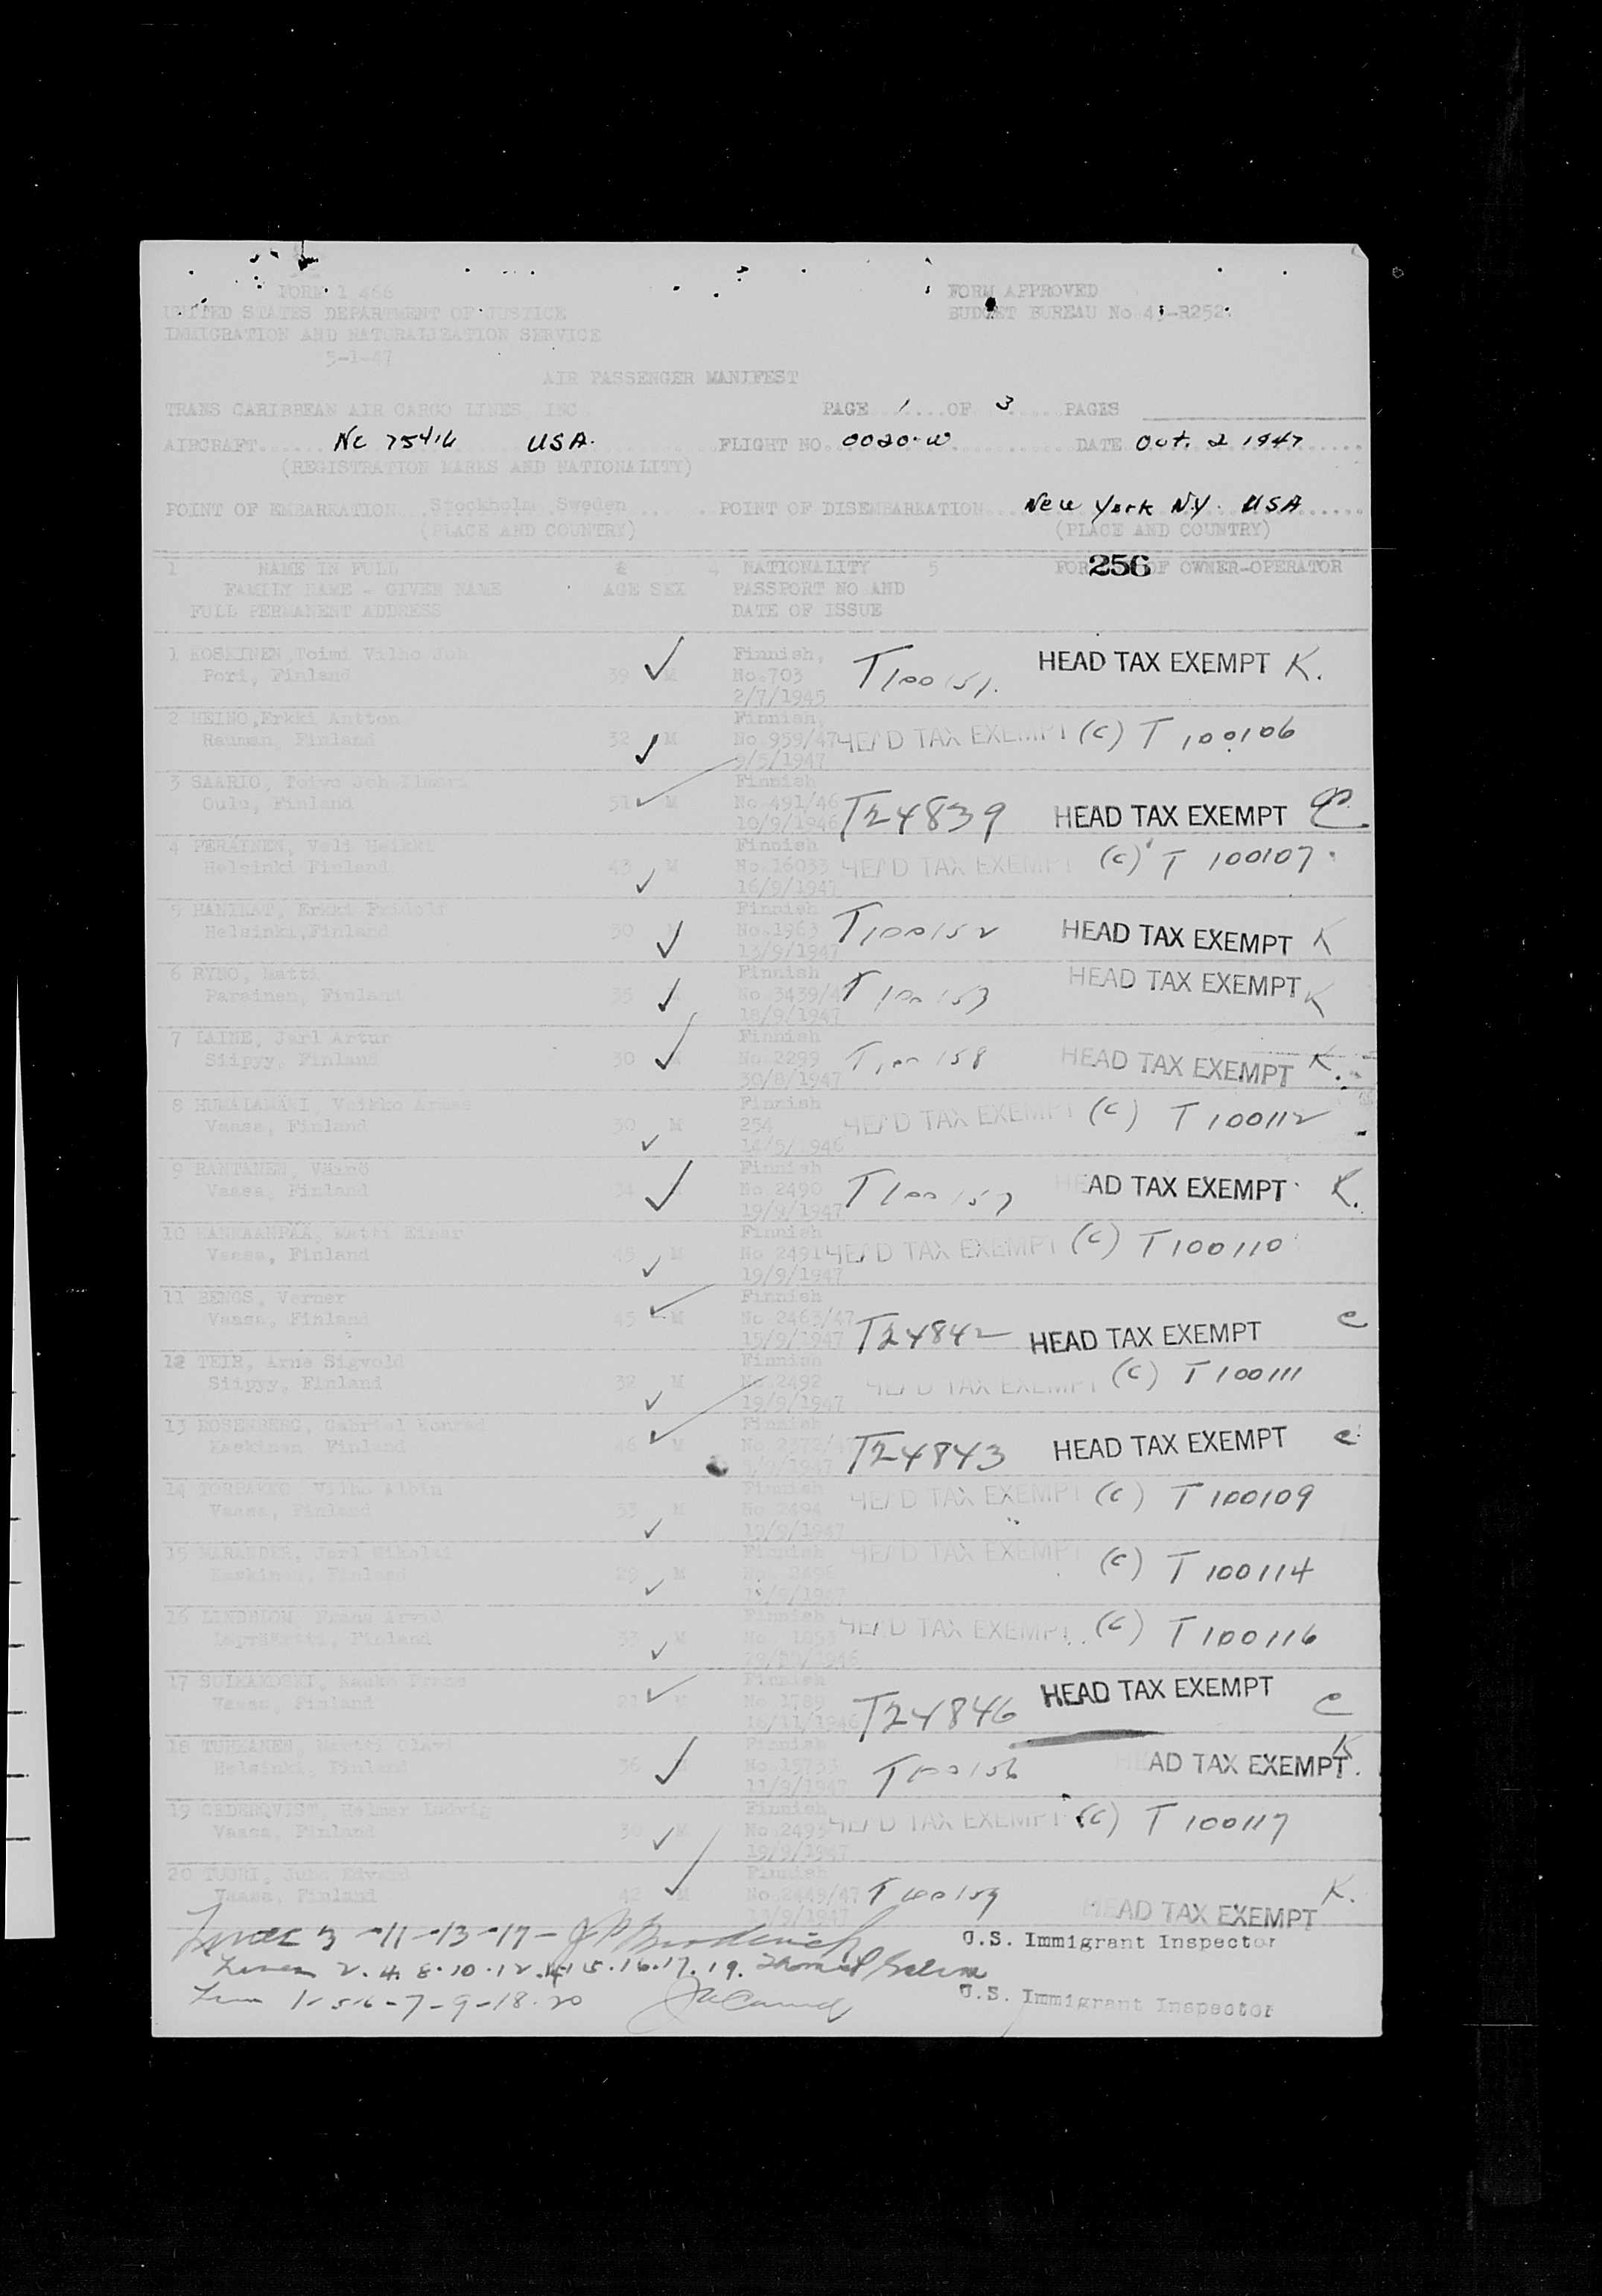 FORM 1 466
UNITED STATES DEPARTMENT OF JUSTICE
IMMIGRATION AND NATURALIZATION SERVICE
5-1-47
FORM APPROVED
BUDGET BUREAU No 43-R252.
AIR PASSENGER MANIFEST
TRANS CARIBBEAN AIR CARGO LINES, INC PAGE 1 OF 3 PAGES
AIRCRAFT NC 75416 USA. FLIGHT NO. 0020-W DATE Oct. 2 1947
(REGISTRATION MARKS AND NATIONALITY)
POINT OF EMBARKATION Stockholm Sweden POINT OF DISEMBARKATION New York N.Y. USA
(PLACE AND COUNTRY) (PLACE AND COUNTRY)
256
1 NAME IN FULL & 4 NATIONALITY 5 FOR OF OWNER-OPERATOR
FAMILY NAME - GIVEN NAME AGE SEX PASSPORT NO AND
FULL PERMANENT ADDRESS DATE OF ISSUE
1 KOSKINEN, Toimi Vilho Joh Finnish, HEAD TAX EXEMPT K.
Pori, Finland 39 M No.703 T100151.
2/7/1945
2 HEINO, Erkki Antton Finnish,
Rauman, Finland 32 M No 959/47 HEAD TAX EXEMPT (C) T 100106
9/5/1947
3 SAARIO, Toivo Joh Ilmari Finnish
Oulu, Finland 51 M No 491/46 T24839 HEAD TAX EXEMPT
10/9/1946
4 PERÄINEN, Veli Heikki Finnish
Helsinki Finland 43 M No 16033 HEAD TAX EXEMPT (C) T 100107.
16/9/1947
5 Erkki Fridolf Finnish
Helsinki, Finland 30 No.1963 T100152 HEAD TAX EXEMPT K
13/9/1947
6 RYHO, Matti Finnish
Parainen, Finland 35 No 3439/4 T 100153 HEAD TAX EXEMPT K
18/9/1947
7 LAINE, Jarl Artur Finnish
Siipyy, Finland 30 No 2299 T100158 HEAD TAX EXEMPT K.
30/8/1947
8 HUMALAMÄKI, Veikko Armas Finnish
Vaasa, Finland 30 M 254 HEAD TAX EXEMPT (C) T 100112
14/5/1946
9 RANTANEN, Väinö Finnish
Vaasa, Finland 34 No 2490 T100157 HEAD TAX EXEMPT K.
19/9/1947
10 KANKAANPÄÄ, Matti Einar Finnish
Vaasa, Finland 45 M No 2491 HEAD TAX EXEMPT (C) T100110
19/9/1947
11 BENGS, Verner Finnish
Vaasa, Finland 45 M No 2463/47 T24842 HEAD TAX EXEMPT C
15/9/1947
12 TEIR, Arne Sigvold Finnish
Siipyy, Finland 32 M No.2492 HEAD TAX EXEMPT (C) T100111
19/9/1947
13 ROSENBERG, Gabriel Konrad Finnish
Kaskinen Finland 46 M T24843 HEAD TAX EXEMPT C
14 Vilho Albin Finnish
Vaasa, Finland 53 M No 2494 HEAD TAX EXEMPT (C) T 100109
19/9/1947
15 Jarl Nikolai Finnish
Kaskinen, Finland 29 M HEAD TAX EXEMPT (C) T 100114
16 LINDBLOM, Frans Arvid Finnish
Finland 33 M No 1853 HEAD TAX EXEMPT (C) T100116
17 Finnish
Vaasa, Finland M No 1789 T24846 HEAD TAX EXEMPT C
14/11/1946
18 Martti Olavi Finnish
Helsinki, Finland 36 No.15733 T100156 HEAD TAX EXEMPT K.
11/9/1947
19 CEDERQVIST, Helmer Ludvig Finnish
Vaasa, Finland 30 M No.2493 HEAD TAX EXEMPT (C) T 100117
19/9/1947
20 TUORI, Juho Edvard Finnish
Vaasa, Finland 42 M No.2449/47 T 100159 HEAD TAX EXEMPT K.
13/9/1947
Lines 3-11-13-17- J P Broderick U.S. Immigrant Inspector
Lines 2.4.8.10.12.14.15.16.17.19.
Lines 1-5-6-7-9-18.20 U.S. Immigrant Inspector